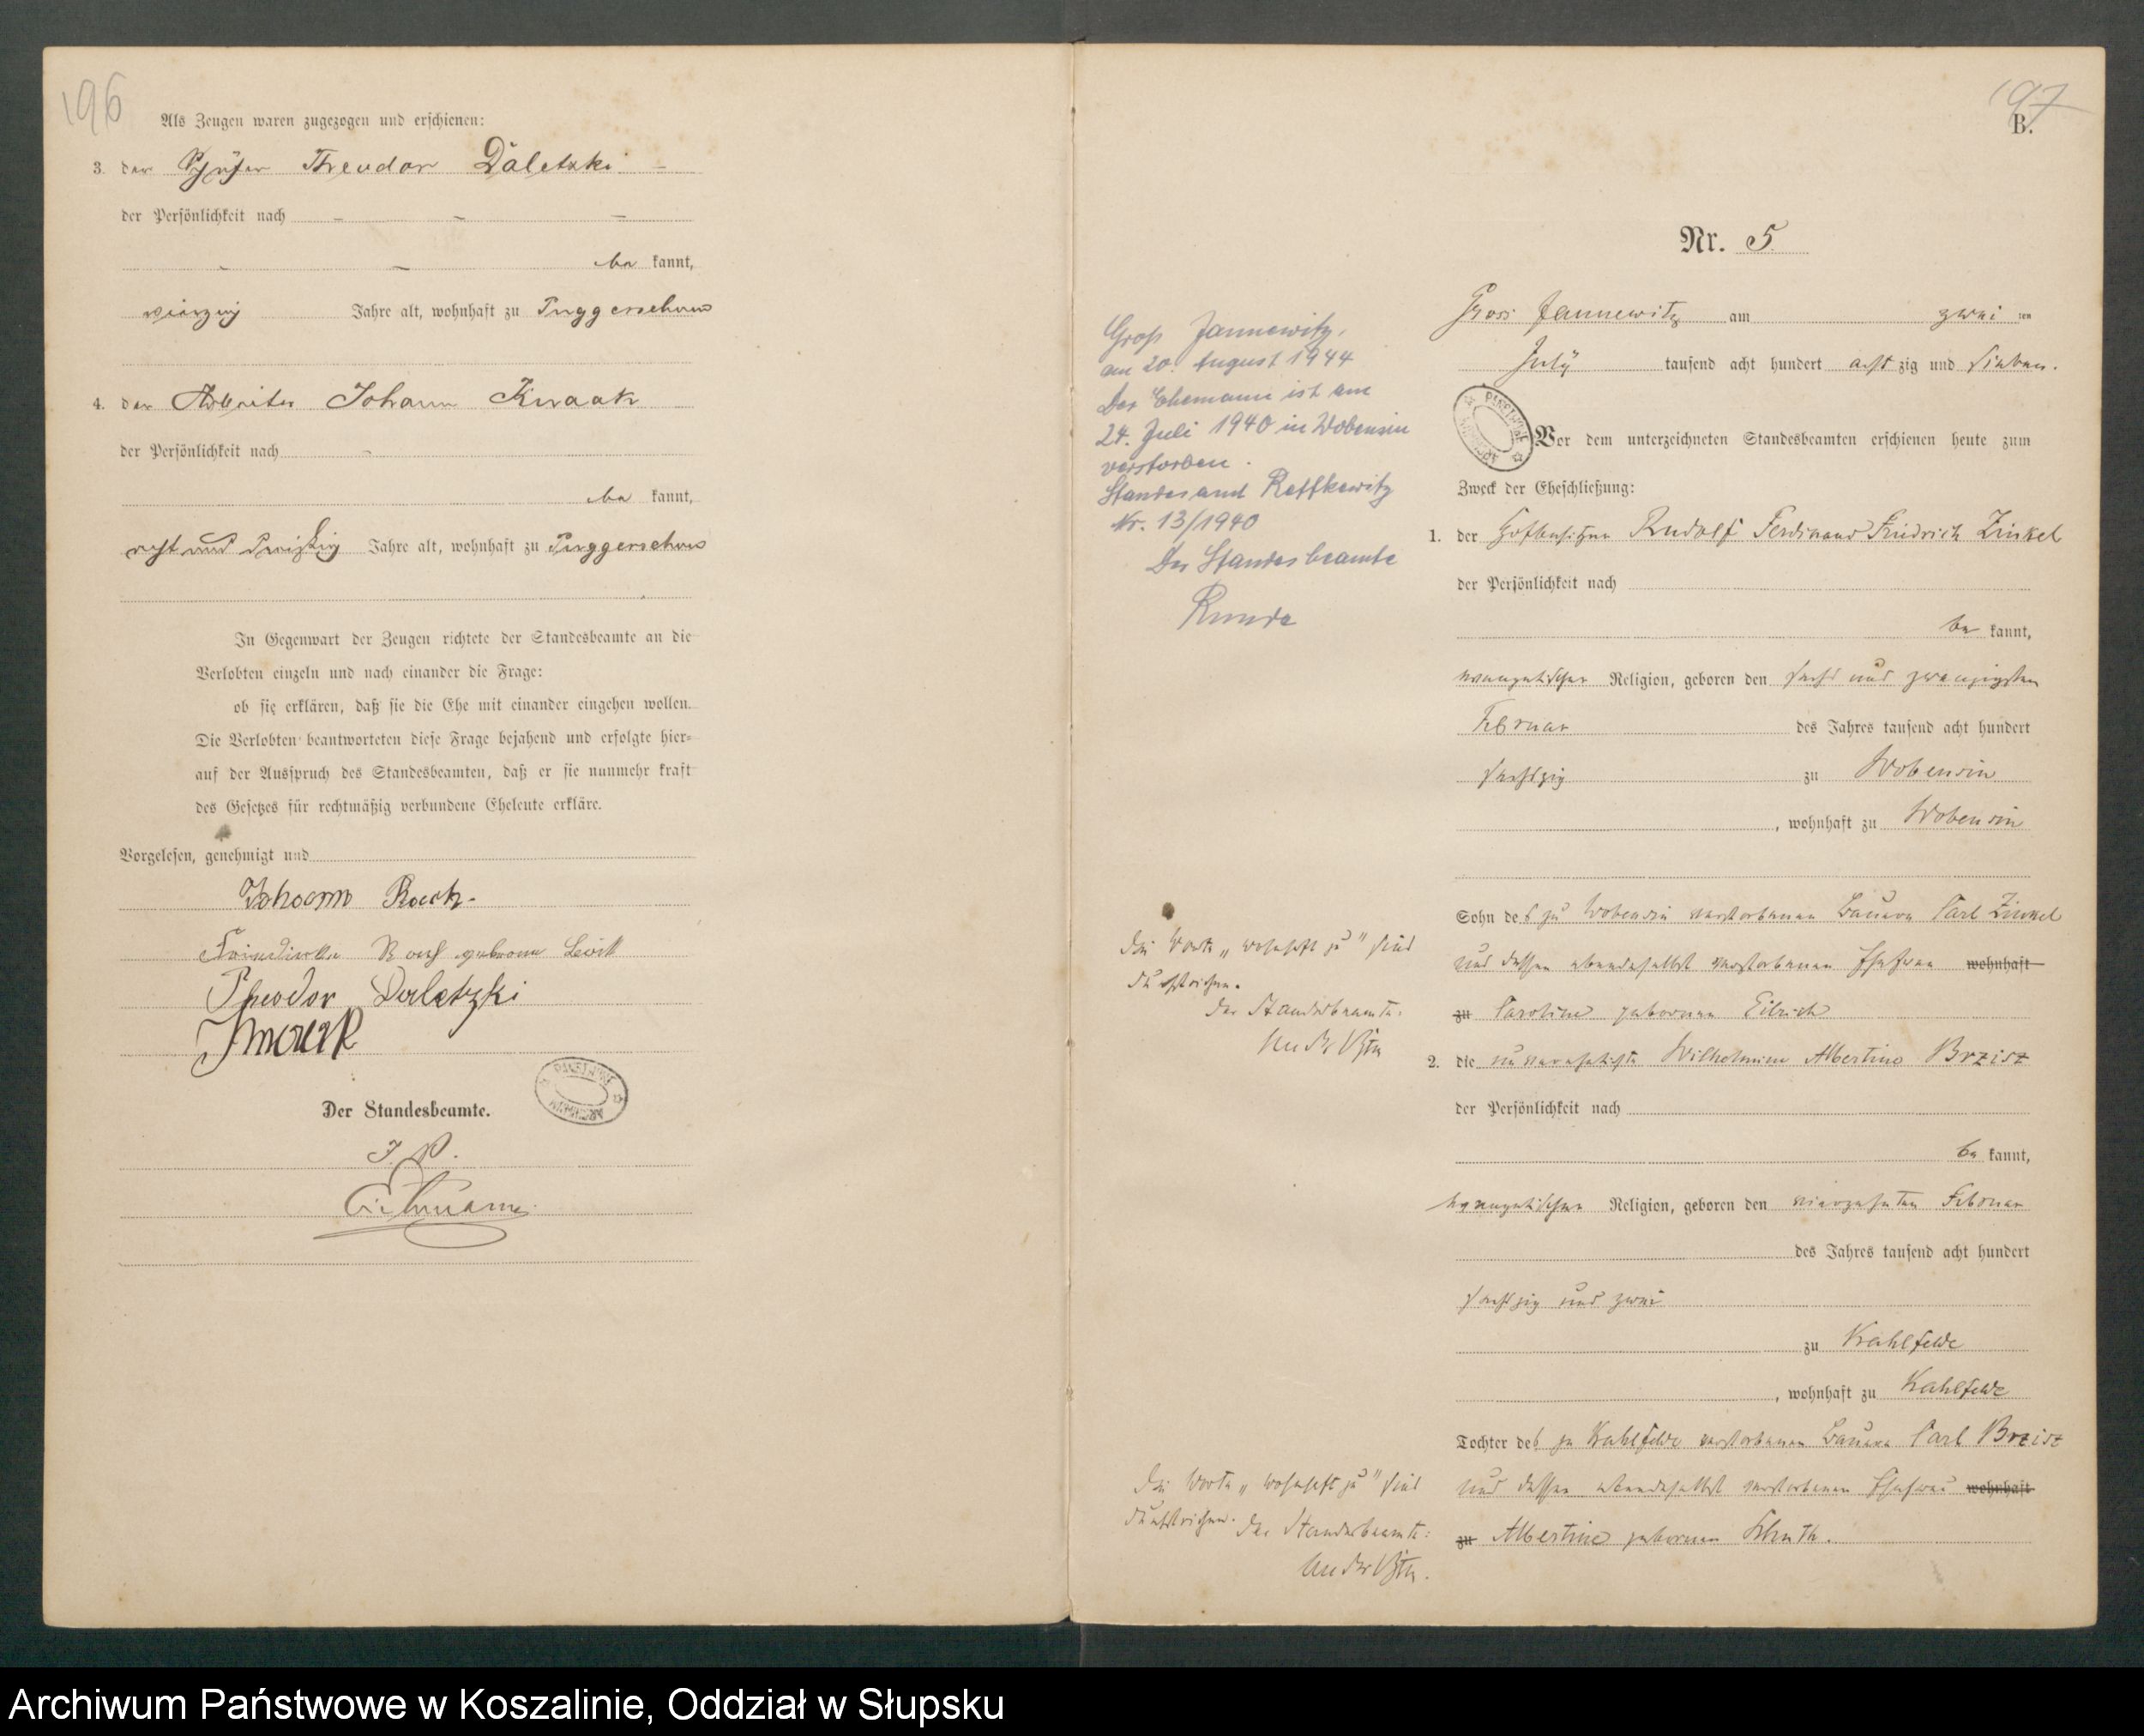 196
Als Zeugen waren zugezogen und erschienen:
3. der Schäfer Theodor Daletzki
der Persönlichkeit nach
be kannt,
vierzig Jahre alt, wohnhaft zu Puggerschow
4. der Arbeiter Johann Knaak
der Persönlichkeit nach
be kannt,
acht und dreißig Jahre alt, wohnhaft zu Puggerschow
In Gegenwart der Zeugen richtete der Standesbeamte an die
Verlobten einzeln und nach einander die Frage:
ob sie erklären, daß sie die Ehe mit einander eingehen wollen.
Die Verlobten beantworteten diese Frage bejahend und erfolgte hier-
auf der Ausspruch des Standesbeamten, daß er sie nunmehr kraft
des Gesetzes für rechtmäßig verbundene Eheleute erkläre.
Vorgelesen, genehmigt und
Johann
geborene
Theodor Daletzki
Der Standesbeamte.
197
B.
Nr. 5
Gross Jannewitz am zwei ten
July tausend acht hundert acht zig und sieben.
Vor dem unterzeichneten Standesbeamten erschienen heute zum
Zweck der Eheschließung:
1. der Hofbesitzer Rudolf Ferdinand Friedrich Zinkel
der Persönlichkeit nach
be kannt,
evangelischer Religion, geboren den sechs und zwanzigsten
Februar des Jahres tausend acht hundert
sechszig zu Wobensin
, wohnhaft zu Wobensin
Sohn des zu Wobensin verstorbenen Bauern Carl Zinkel
und dessen ebendaselbst verstorbenen Ehefrau wohnhaft
zu Caroline geborenen Eilrich
2. die unverehelichte Wilhelmine Albertine Brzisz
der Persönlichkeit nach
be kannt,
evangelischer Religion, geboren den vierzehnten Februar
des Jahres tausend acht hundert
sechszig und zwei
zu Kahlfelde
, wohnhaft zu Kahlfelde
Tochter des zu Kahlfelde verstorbenen Bauern Carl Brzisz
und dessen ebendaselbst verstorbenen Ehefrau wohnhaft
zu Albertine geborenen
Groß Jannewitz,
am 20. August 1944
Der Ehemann ist am
24. Juli 1940 in Wobensin
verstorben.
Standesamt Roffkewitz
Nr. 13/1940
Der Standesbeamte
Runde
Die Worte „wohnhaft zu" sind
durchstrichen.
Der Standesbeamte.
Die Worte „wohnhaft zu" sind
durchstrichen. Der Standesbeamte:
Archiwum Państwowe w Koszalinie, Oddział w Słupsku